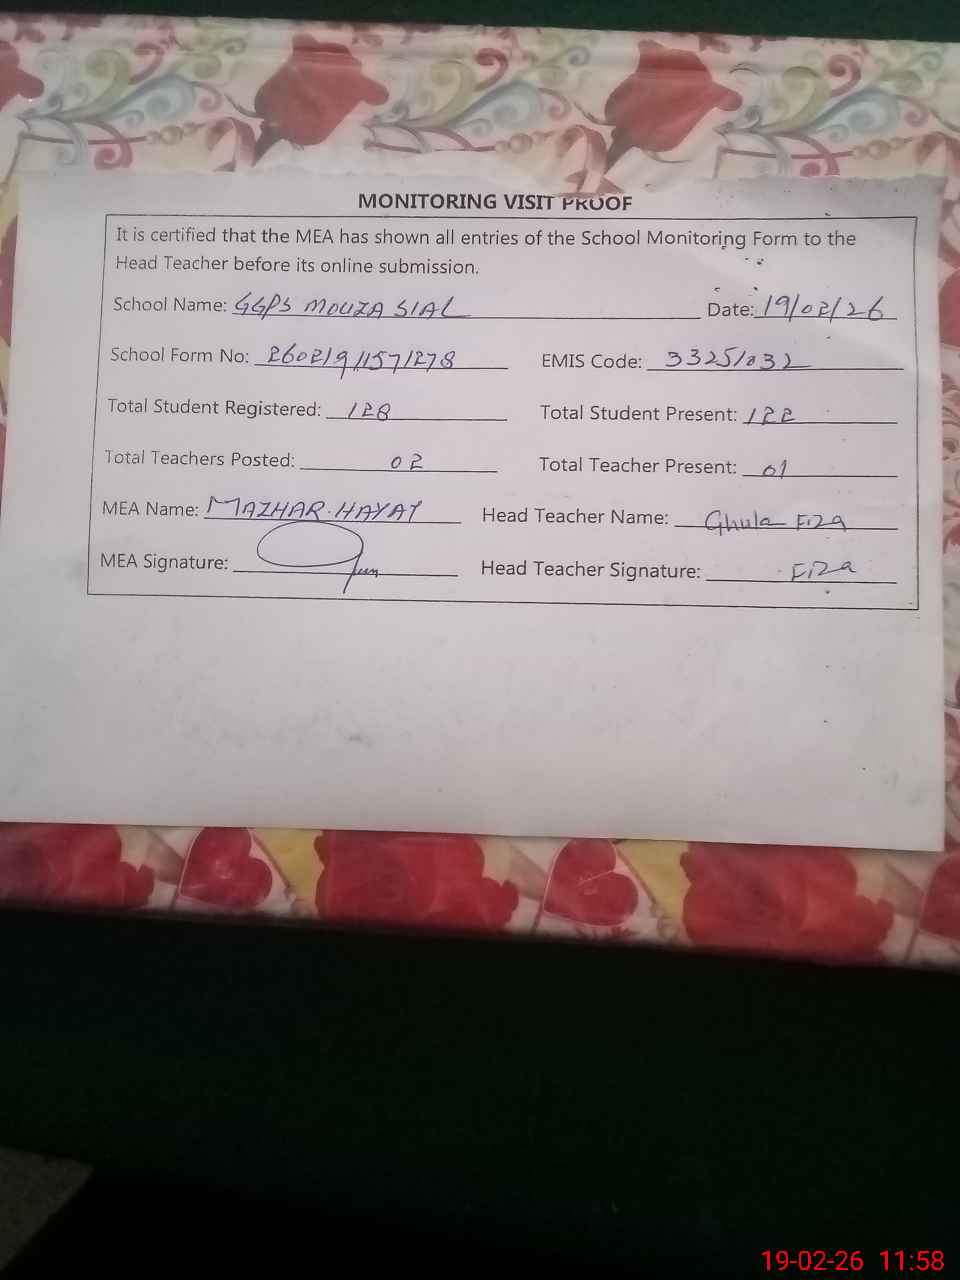 MONITORING VISIT PROOF
It is certified that the MEA has shown all entries of the School Monitoring Form to the
Head Teacher before its online submission.
School Name: GGPS MOUZA SIAL Date: 19/02/26
School Form No: 26021911571278 EMIS Code: 33251032
Total Student Registered: 128 Total Student Present: 122
Total Teachers Posted: 02 Total Teacher Present: 01
MEA Name: MAZHAR. HAYAT Head Teacher Name: Ghula Fiza
MEA Signature: Head Teacher Signature: Fiza
19-02-26 11:58